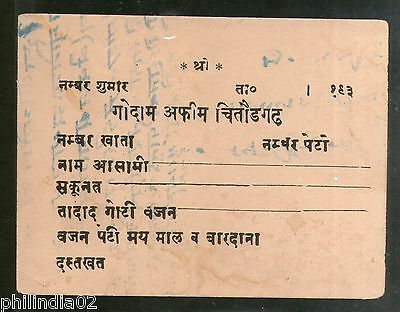 * श्री *
नम्बर शुमार त:० । १९३
गोदाम अफीम चितौडगढ
नम्बर खाता नम्बर पेटी
नाम आसामी
सकूनत
तादाद गोटी वजन
वजन पेटी मय माल व बारदाना
दस्तखत
philindia02